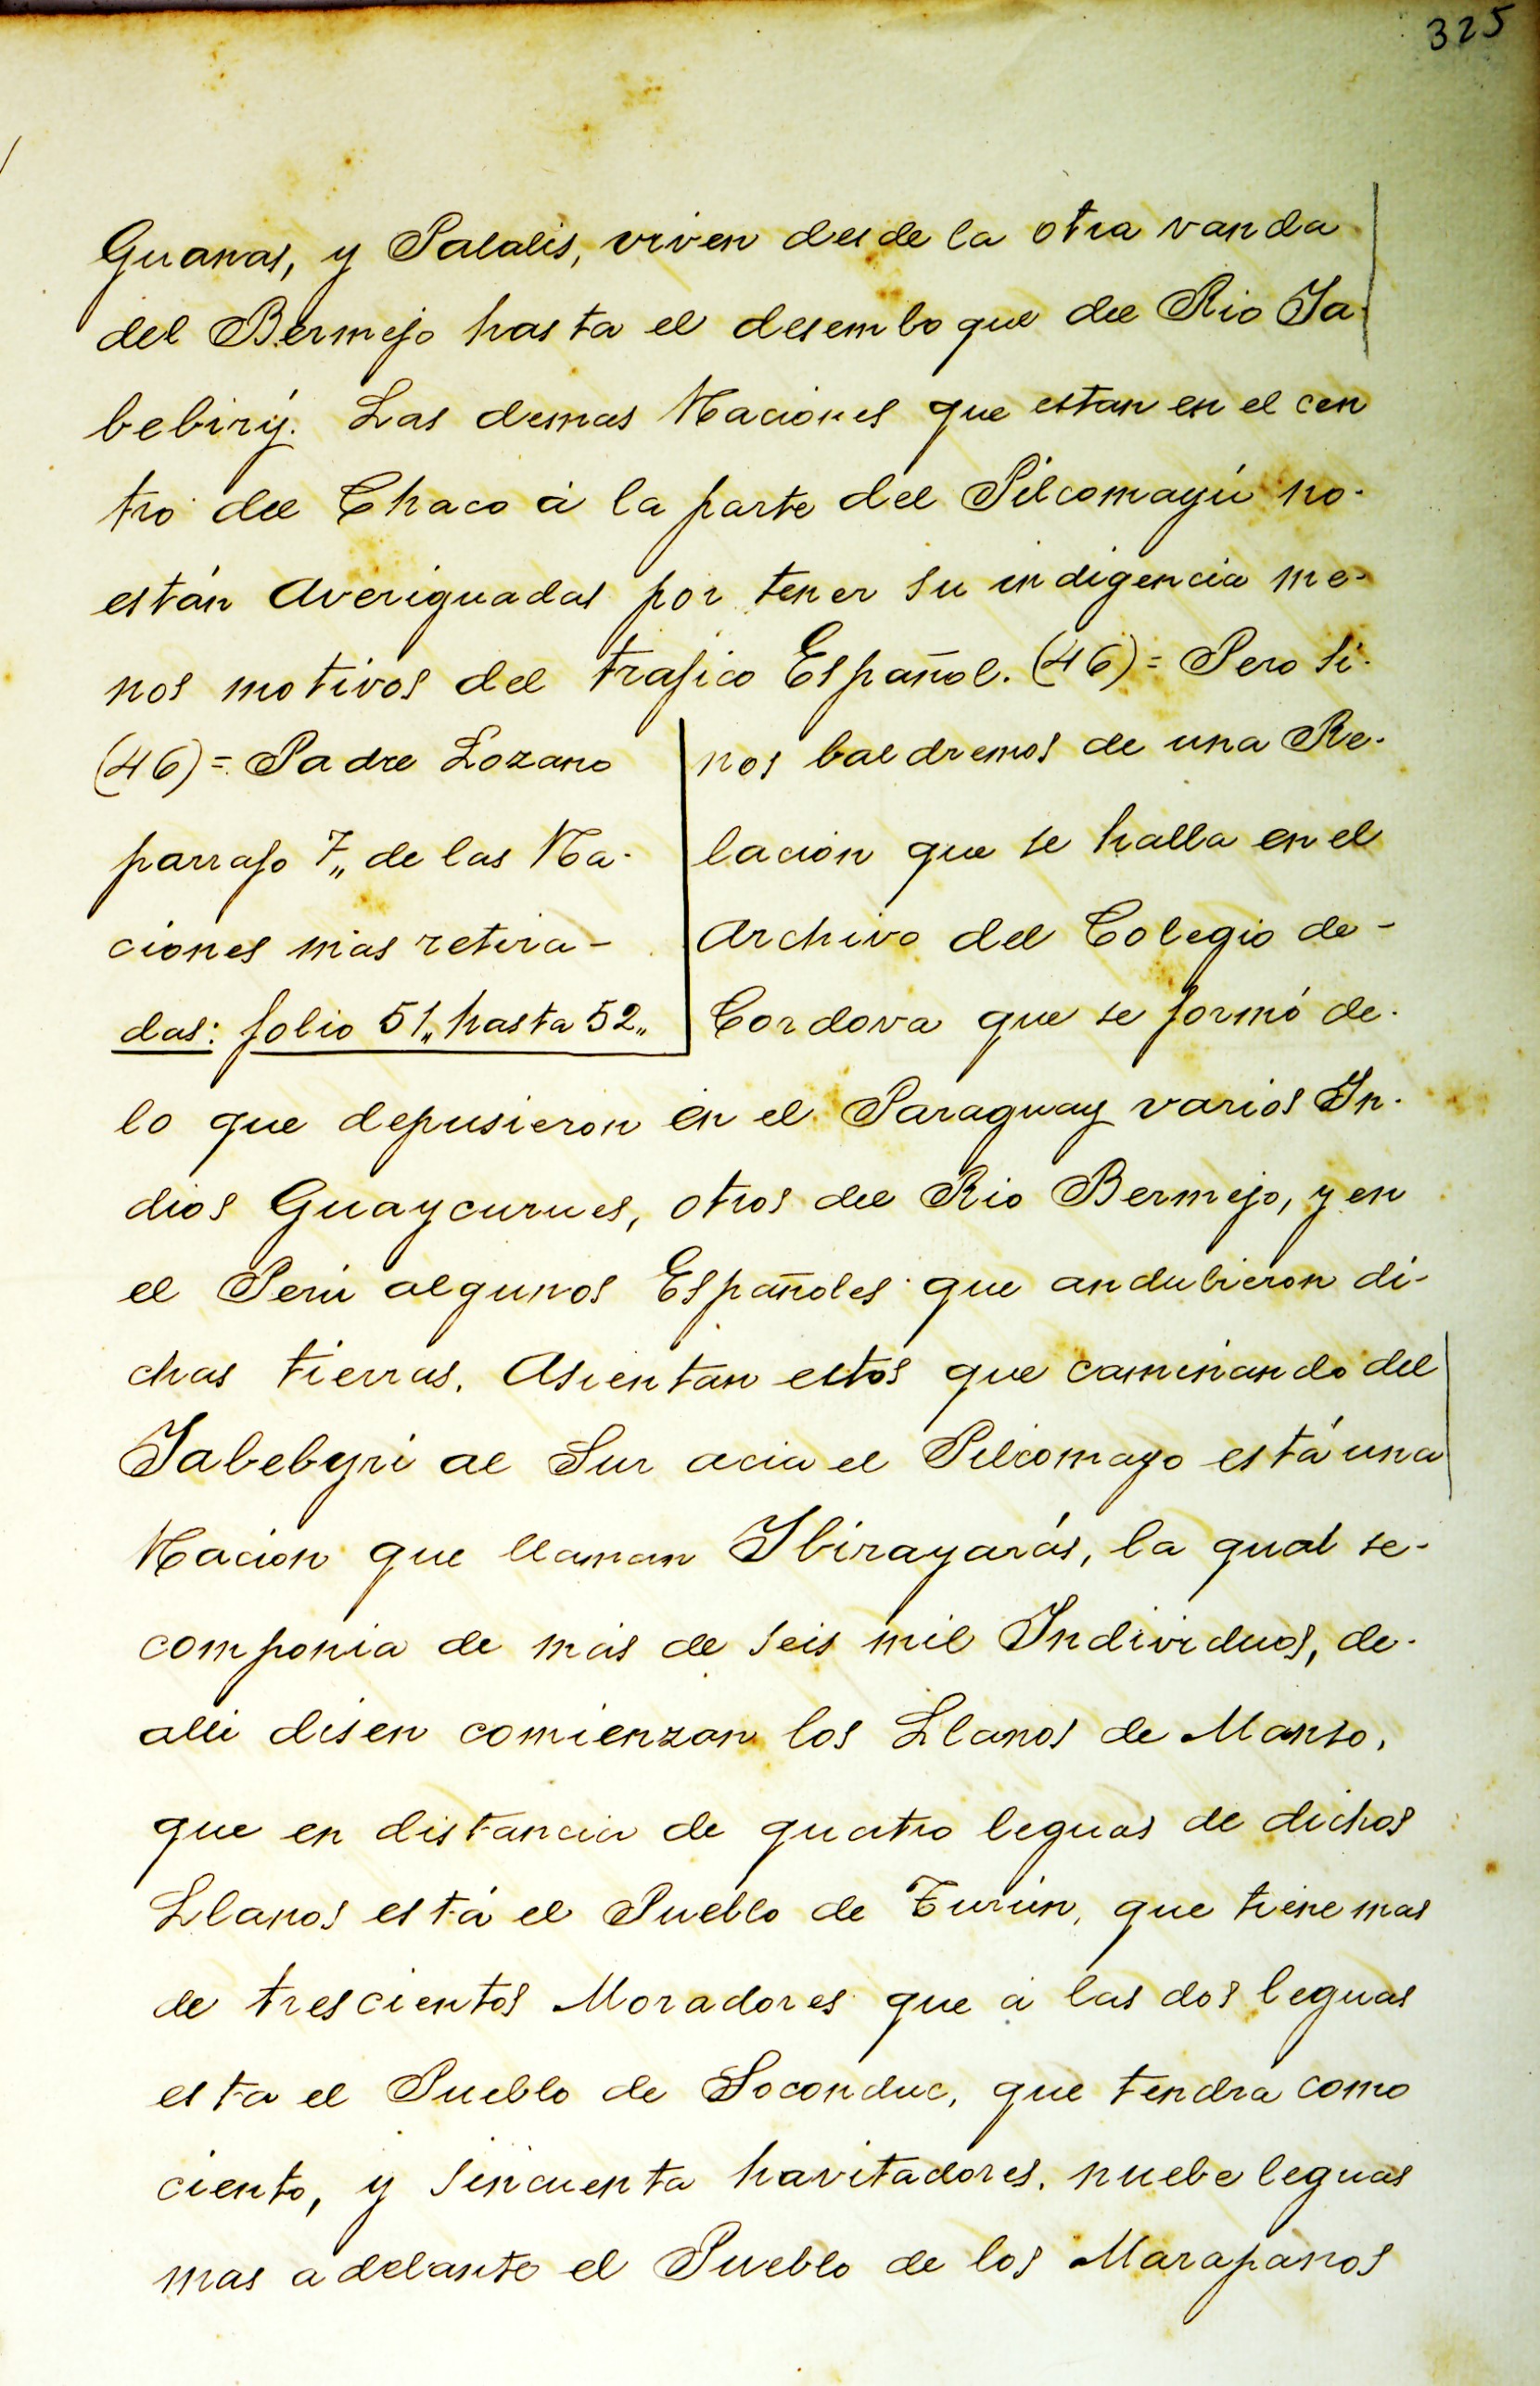 325
Guanas, y Palalis, viven desde la otra vanda
del Bermejo hasta el desemboque del Rio Ja-
bebirý. Las demas Naciones que estan en el cen
tro del Chaco á la parte del Pilcomayú no-
están Averiguadas por tener su indigencia me-
nos motivos del trafico Español. (46)= Pero si-
(46)= Padre Lozano
parrafo 7,, de las Na-
ciones más retira-
das: folio 51,, hasta 52,,
nos baldremos de una Re-
lacion que se halla en el
Archivo del Colegio de-
Cordova que se formó de-
lo que depusieron en el Paraguay varios In-
dios Guaycurues, otros del Rio Bermejo, y en
el Perú algunos Españoles que andubieron di-
chas tierras. Asientan estos que caminando del
Jabebyri al Sur acia el Pilcomayo está una
Nacion que llaman Ibirayarás, la qual se-
componia de más de seis mil Individuos, de-
alli disen comienzan los Llanos de Manso,
que en distancia de quatro leguas de dichos
Llanos está el Pueblo de Turún, que tiene mas
de trescientos Moradores que á las dos leguas
esta el Pueblo de Soconduc, que tendra como
ciento, y sincuenta havitadores. nuebe leguas
mas adelante el Pueblo de los Marapanos